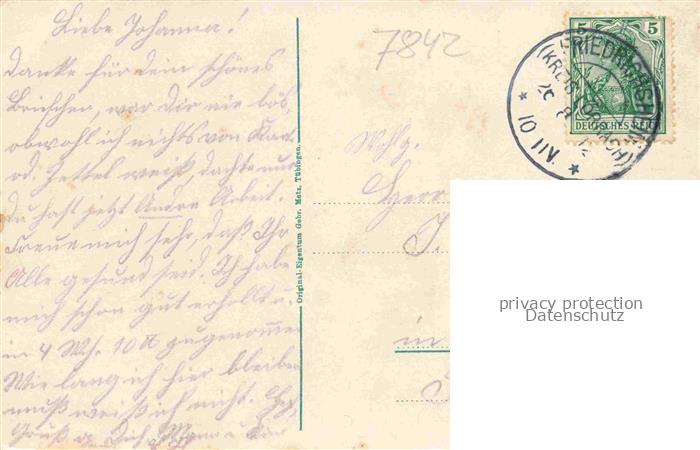 Liebe Johanna!
Danke für dein schönes
Briefchen, war dir nie bös,
obwohl ich nichts von Kart
od. Zettel weiß, dachte nur
du hast jetzt Andre Arbeit.
Freue mich sehr, daß Ihr
Alle gesund seid. Ich habe
mich schon gut erhollt u.
in 4 Wch. 10 ℔ zugenommen
Wie lang ich hier bleiben
muß weiß ich nicht.
Gruß a. Dich, Mann u.
Original-Eigentum Gebr. Metz, Tübingen.
7842
5 5
DEUTSCHES REICH
FRIEDRICHSH
(KREIS LÖRRACH)
* 10 11 V. *
Wohlg.
Herr
J.
in
privacy protection
Datenschutz